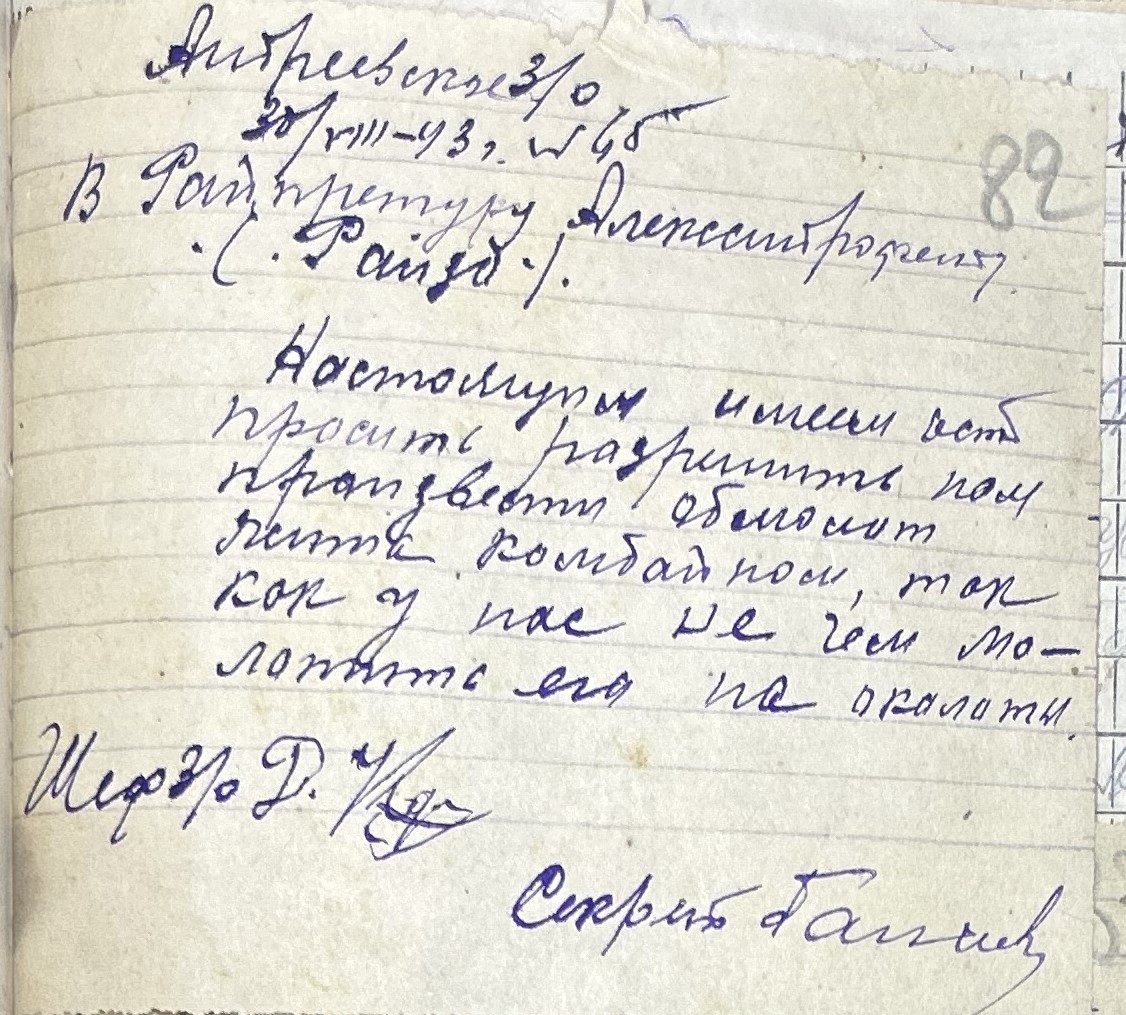 Андреевское З/О
30/VIII-43 г. № 46
82
В Райпретуру Александрофельд
(Райзо)
Настоящим имеем честь
просить разришить нам
праизвести обмолот
жита комбайном, так
как у нас не чем мо-
лотить его не околоты.
Шеф З/О Г.
Секрет.